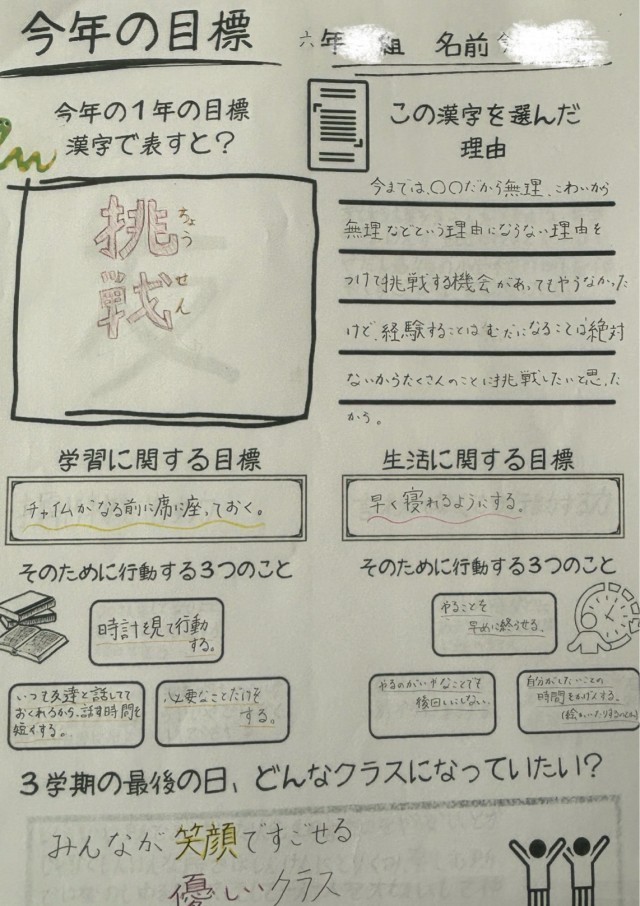 今年の目標
六年 組 名前
今年の1年の目標
漢字で表すと?
挑戦
ちょうせん
この漢字を選んだ
理由
今までは、〇〇だから無理、こわいから
無理などという理由にならない理由を
つけて挑戦する機会があってもやらなかった
けど、経験することはむだになることは絶対
ないからたくさんのことに挑戦したいと思った
から。
学習に関する目標
チャイムがなる前に席に座っておく。
そのために行動する3つのこと
時計を見て行動
する。
いつも友達と話してて
おくれるから、話す時間を
短くする。
必要なことだけを
する。
生活に関する目標
早く寝れるようにする。
そのために行動する3つのこと
やることを
早めに終らせる。
やるのがいやなことでも
後回しにしない。
自分がしたいことの
時間を
3学期の最後の日、どんなクラスになっていたい?
みんなが笑顔ですごせる
優しいクラス